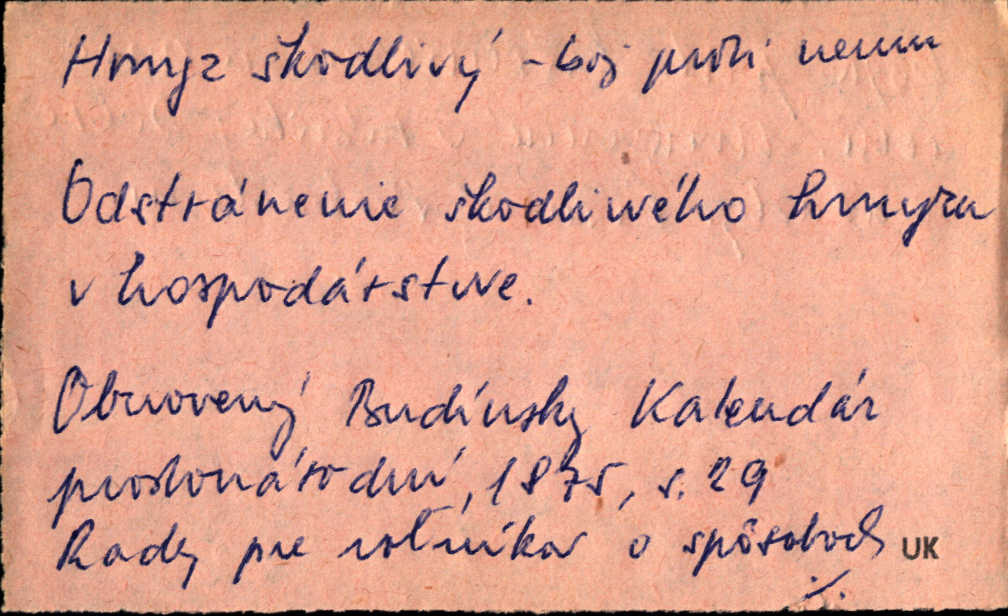 Hmyz škodlivý - boj proti nemu
Odstránenie škodlivého hmyzu
v hospodárstve.
Obnovený Budínsky Kalendár
prostonárodní, 1875, s. 29
Rady pre roľníkov o spôsoboch UK
./.